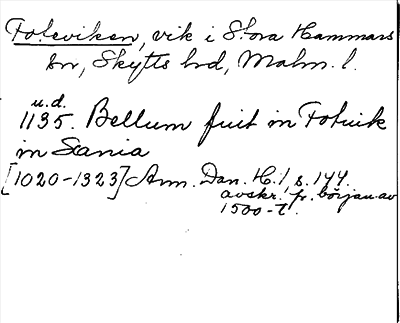 Foteviken, vik i Stora Hammars
sn, Skytts hd, Malm. l.
u.d.
1135. Bellum fuit in Fotuik
in Scania
[1020-1323] Ann. Dan. H. 1, s. 144.
avskr. fr. början av
1500-t.